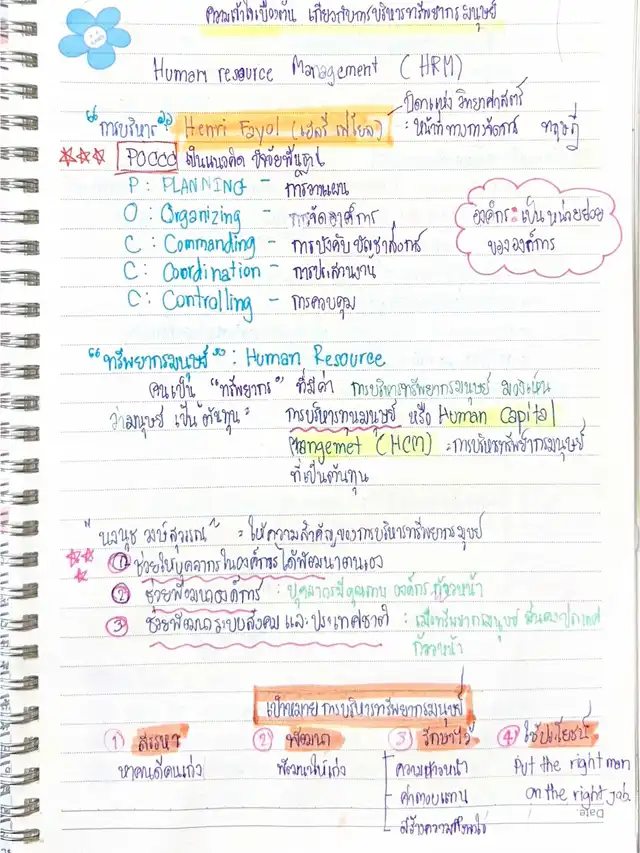 ความเข้าใจเบื้องต้น เกี่ยวกับการบริหารทรัพยากรมนุษย์
Human resource Management (HRM)
"การบริหาร" Henri Fayol (เฮนรี่ ฟาโยล) บิดาแห่ง วิทยาศาสตร์
: หน้าที่ทางการจัดการ ทฤษฎี
POCCC เป็นแนวคิด ปัจจัยพื้นฐาน
P : PLANNING - การวางแผน
O : Organizing - การจัดองค์การ
C : Commanding - การบังคับบัญชาสั่งการ
C : Coordination - การประสานงาน
C : Controlling - การควบคุม
องค์กร : เป็น หน่วยย่อย
ของ องค์การ
"ทรัพยากรมนุษย์" : Human Resource
คนเป็น "ทรัพยากร" ที่มีค่า การบริหารทรัพยากรมนุษย์ มองเห็น
ว่ามนุษย์ เป็น ต้นทุน : การบริหารทุนมนุษย์ หรือ Human Capital
Mangemet (HCM) : การบริหารทรัพยากรมนุษย์
ที่เป็นต้นทุน
"นงนุช วงษ์สุวรรณ" : ให้ความสำคัญของการบริหารทรัพยากรมนุษย์
① ช่วยให้บุคลากรในองค์การได้พัฒนาตนเอง
② ช่วยพัฒนาองค์การ : บุคลากรมีคุณภาพ องค์กรก้าวหน้า
③ ช่วยพัฒนาระบบสังคม และ ประเทศชาติ : เมื่อทรัพยากรมนุษย์ มั่นคงประเทศ
ก้าวหน้า
เป้าหมาย การบริหารทรัพยากรมนุษย์
① สรรหา ② พัฒนา ③ รักษาไว้ ④ ใช้ประโยชน์
หาคนดีคนเก่ง พัฒนาให้เก่ง ความก้าวหน้า Put the right man
ค่าตอบแทน on the right job.
Date.
สร้างความพึงพอใจ